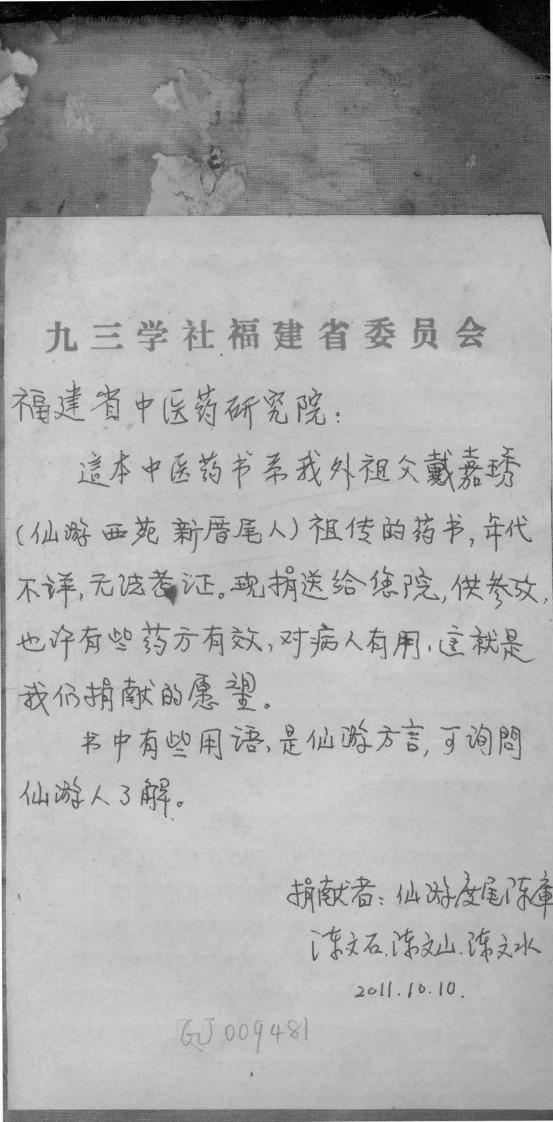 九三学社福建省委员会
福建省中医药研究院：
這本中医药书系我外祖父戴嘉琇
（仙游西苑新厝尾人）祖传的药书，年代
不详，无法考证。现捐送给您院，供参攷，
也许有些药方有效，对病人有用，这就是
我们捐献的愿望。
书中有些用语，是仙游方言，可询問
仙游人了解。
捐献者：仙游度尾陈庫
陈文石、陈文山、陈文水
2011.10.10.
GJ 009481